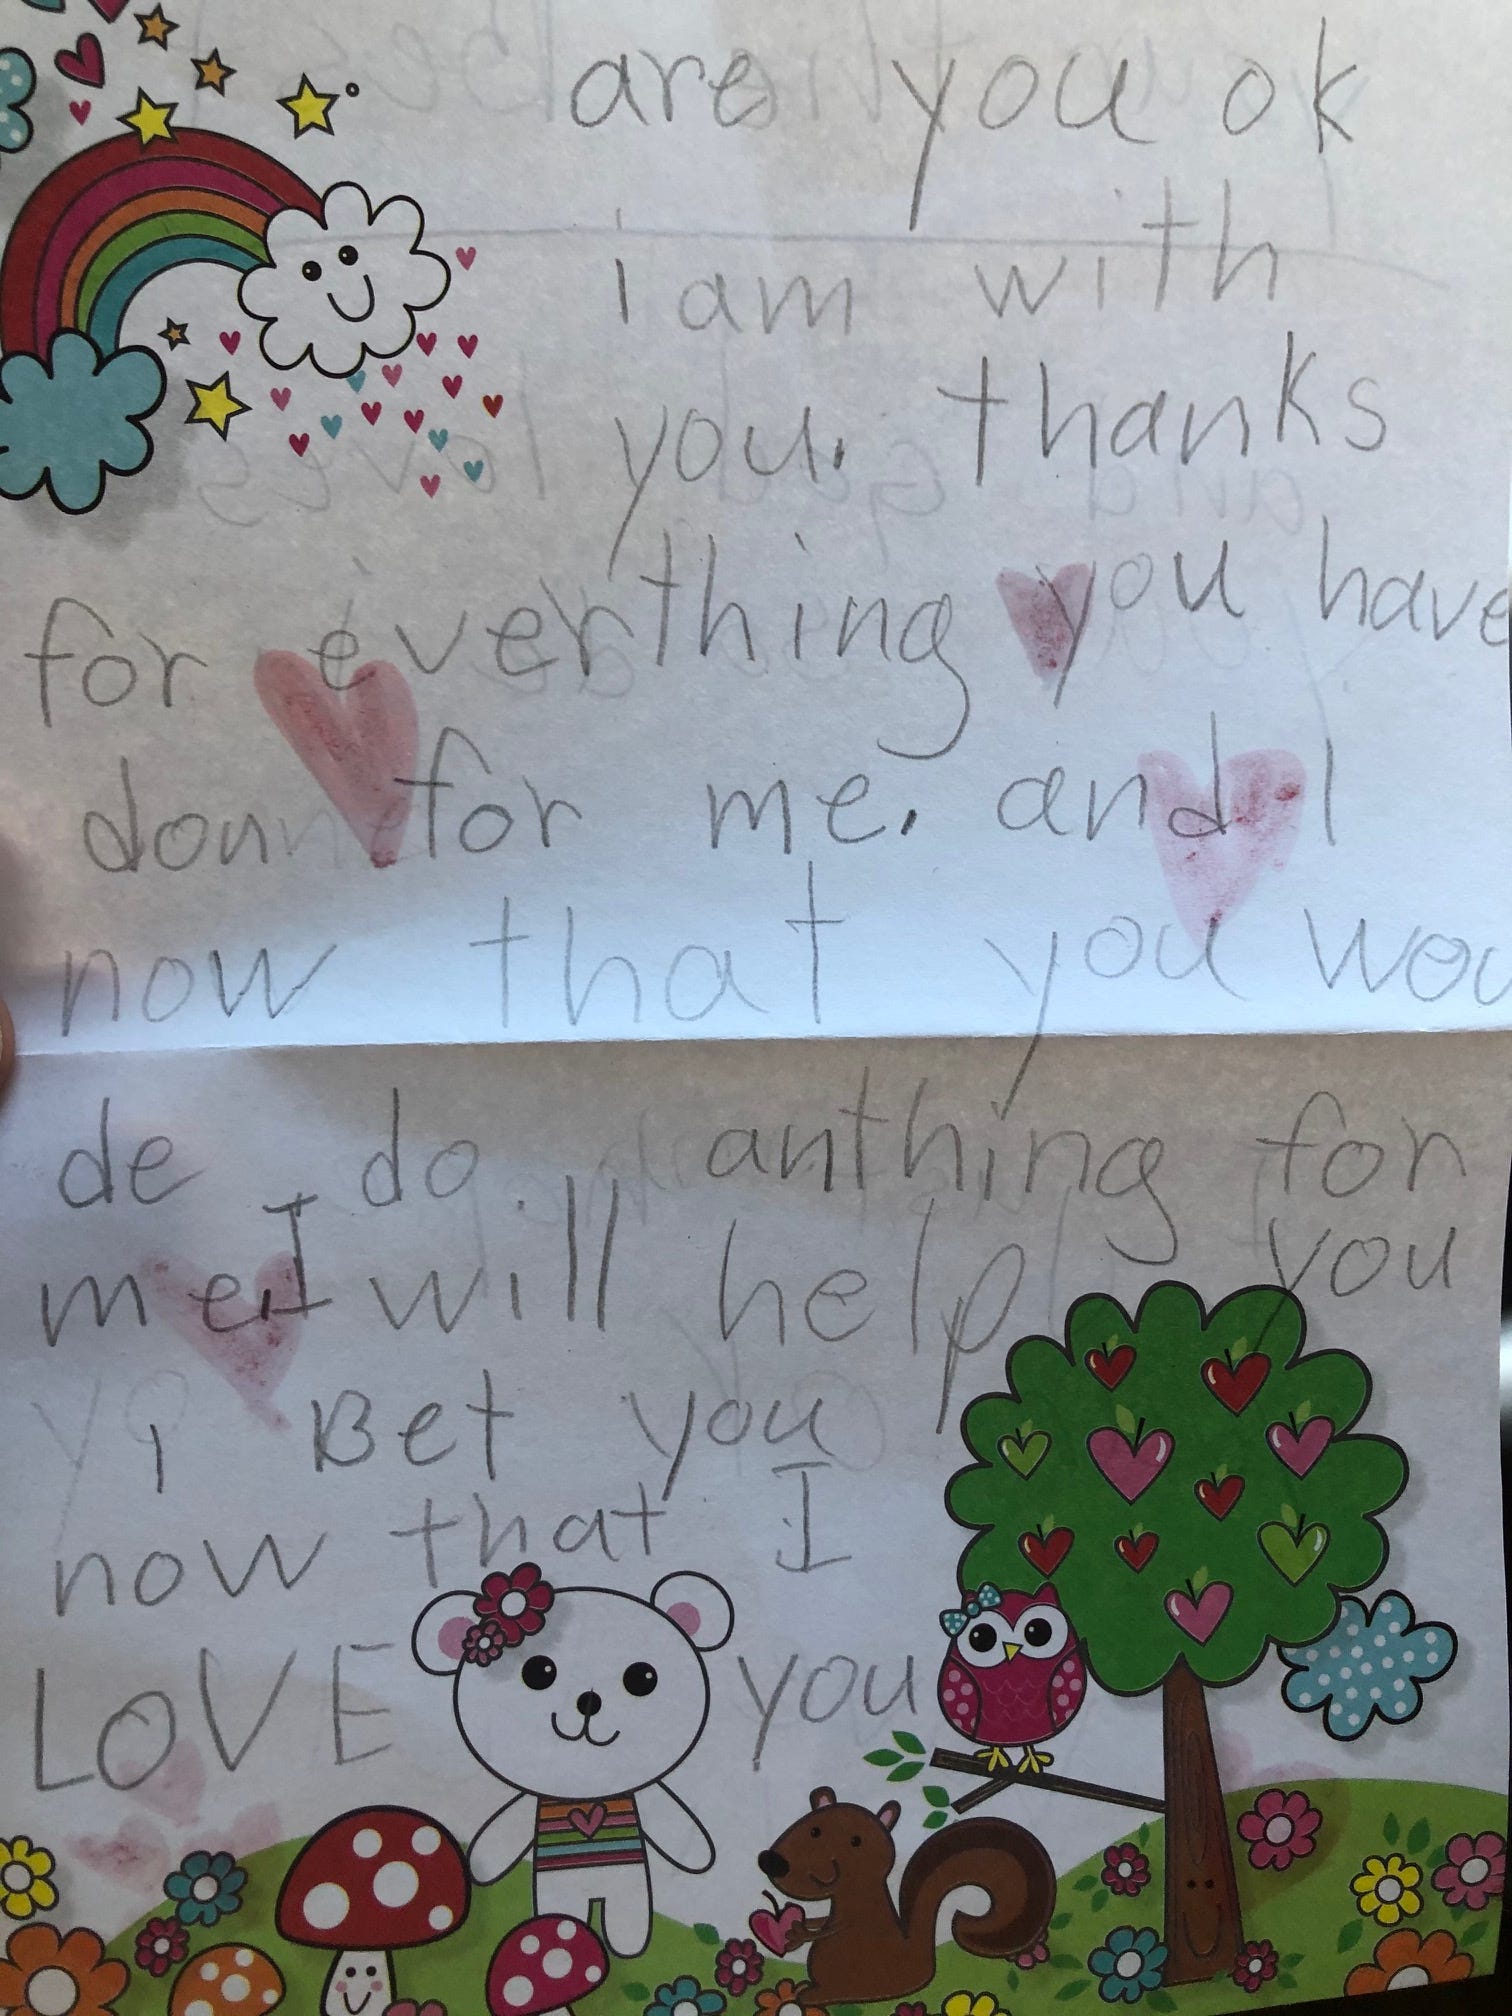 are you ok
i am with
you. thanks
for everthing you have
doun for me. and I
now that you wou
de do anthing for
me. I will help you
, Bet you
now that I
LOVE you